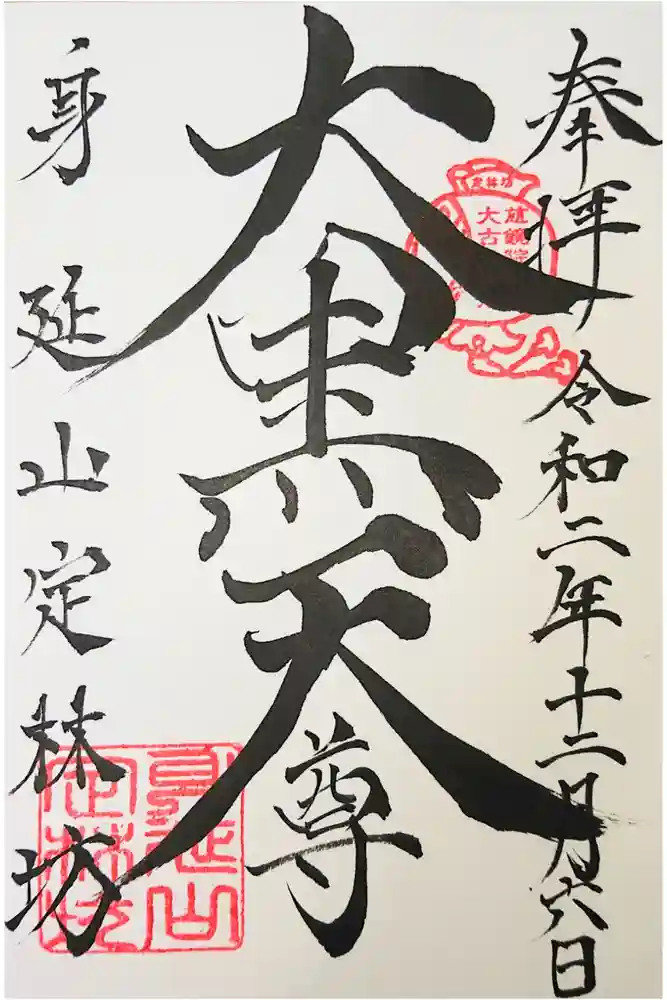 奉拝 令和二年十二月六日
大黒天尊
身延山定林坊
身延山
定林坊